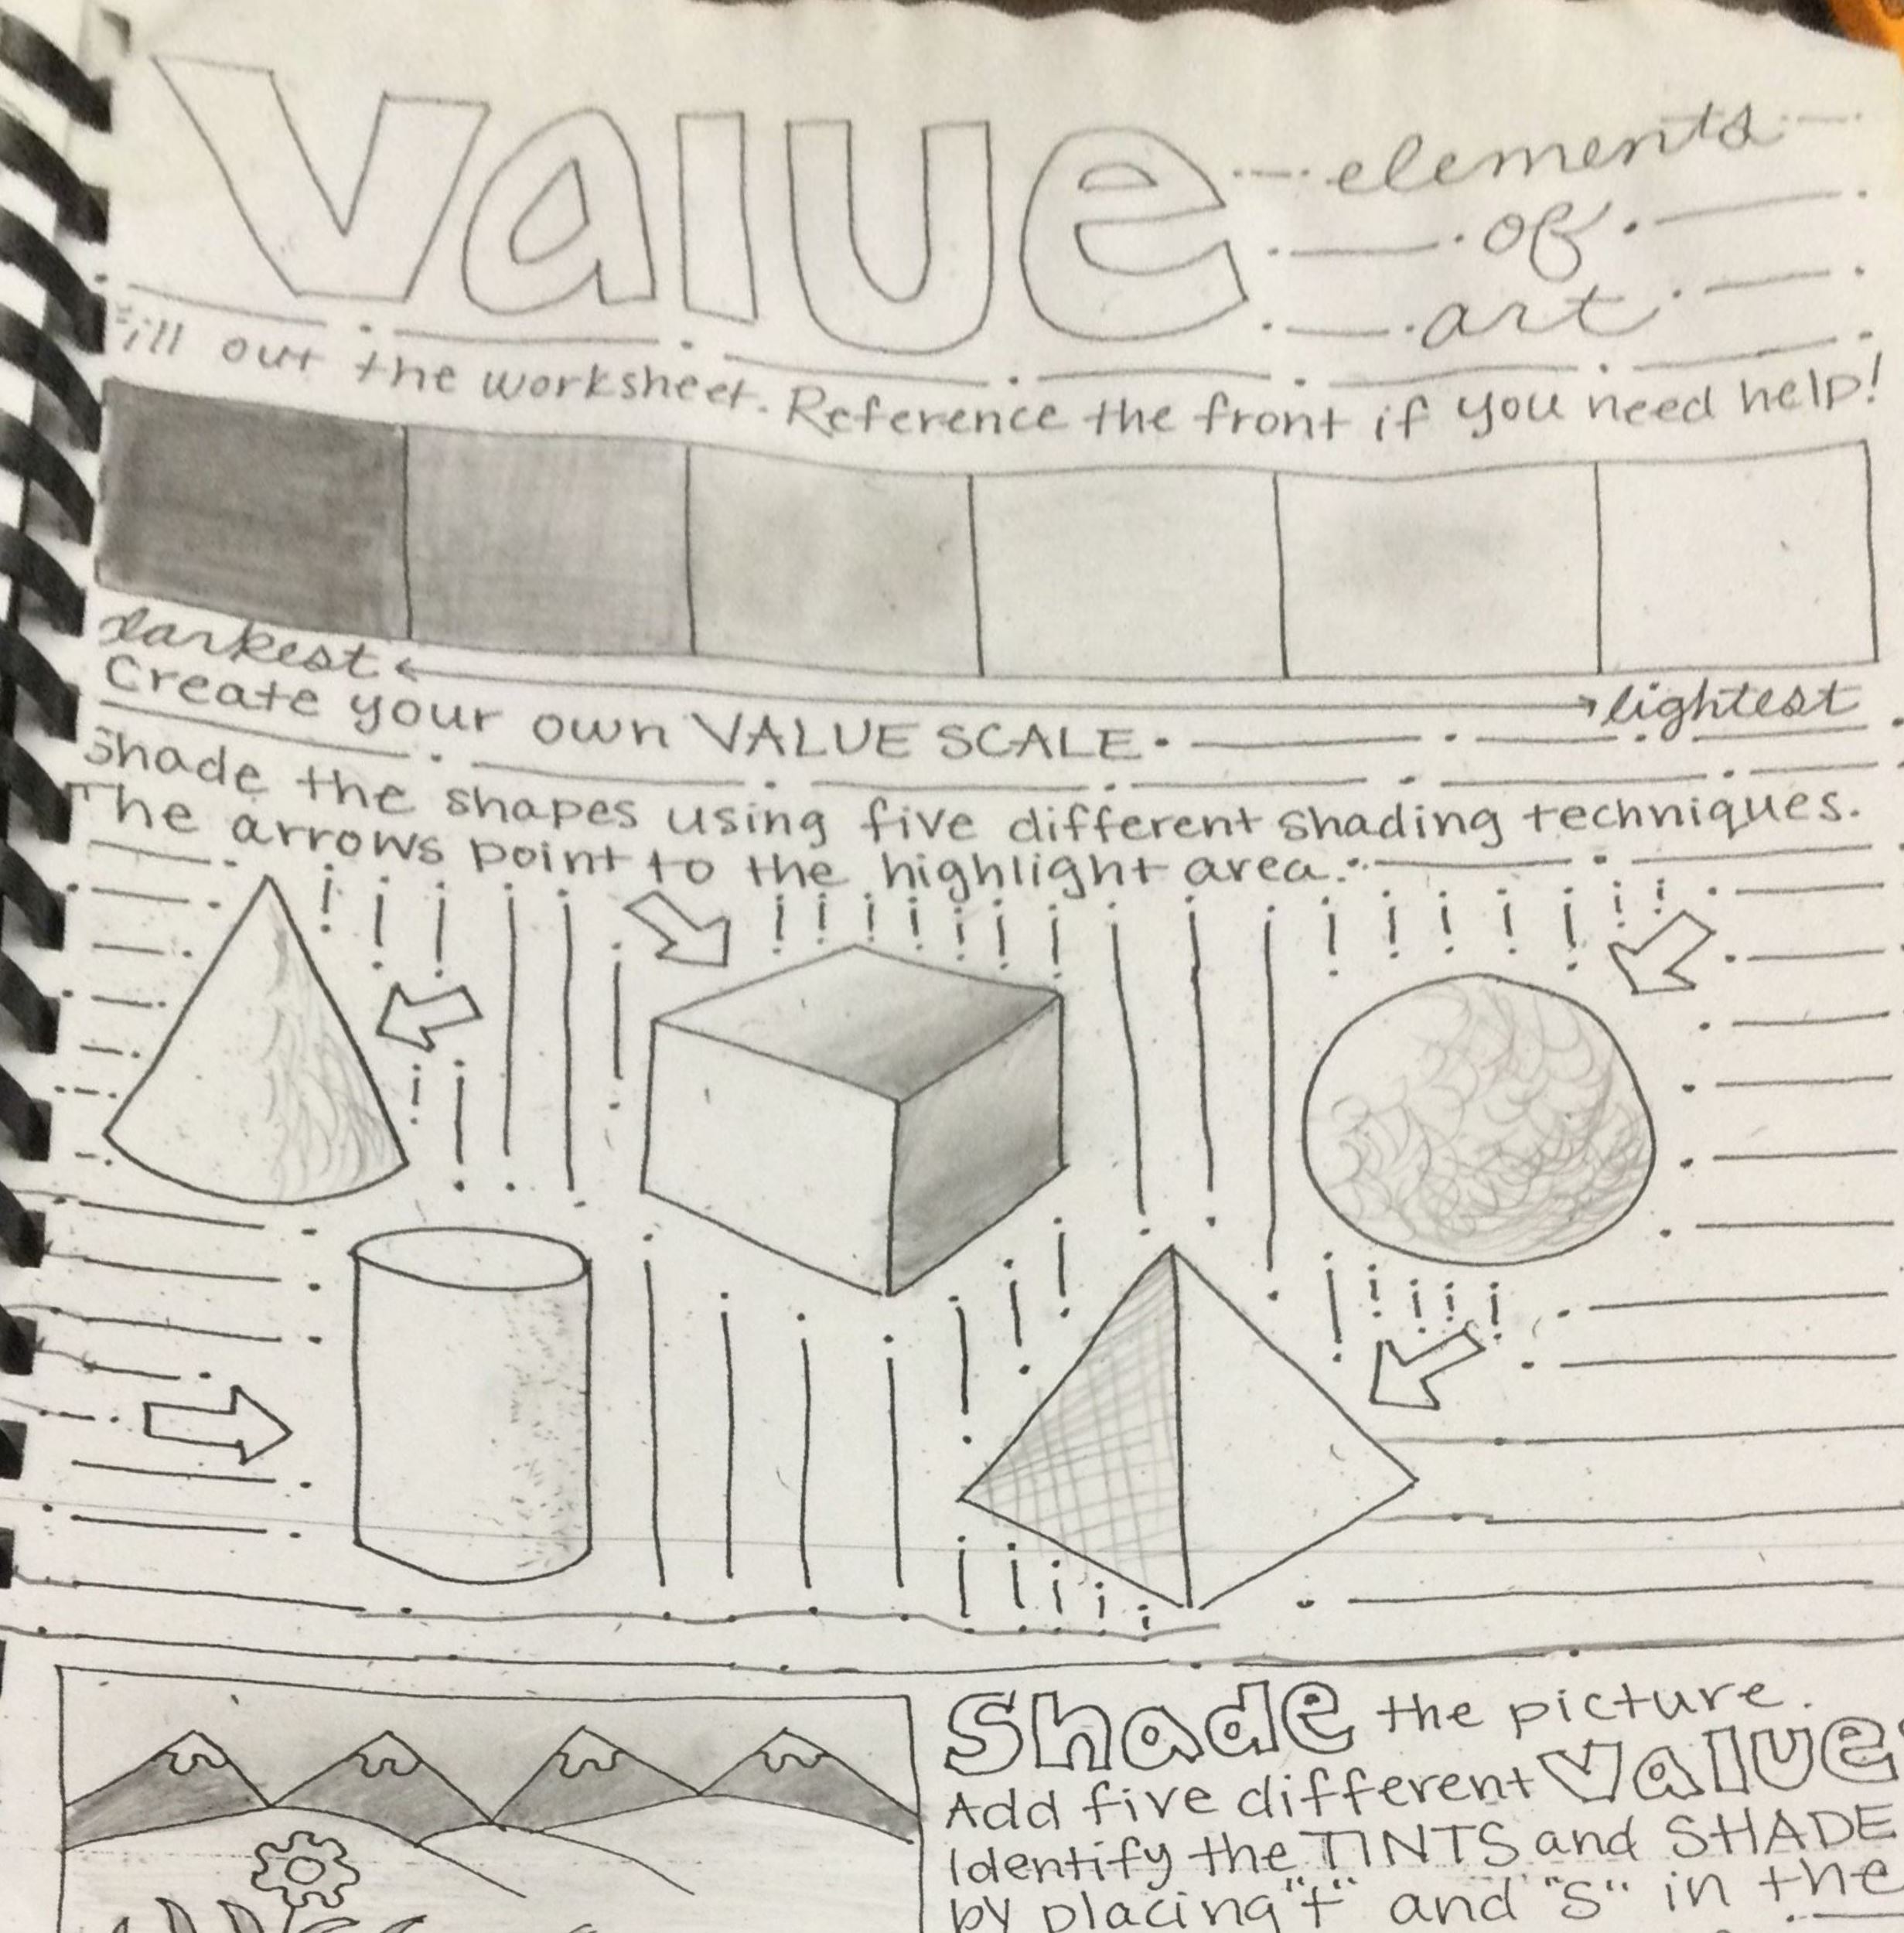 Value
elements
of
art
Fill out the worksheet. Reference the front if you need help!
darkest
lightest
Create your own VALUE SCALE.
Shade the shapes using five different shading techniques.
The arrows point to the highlight area.
Shade the picture.
Add five different Value
Identify the TINTS and SHADE
by placing "t" and "S" in the